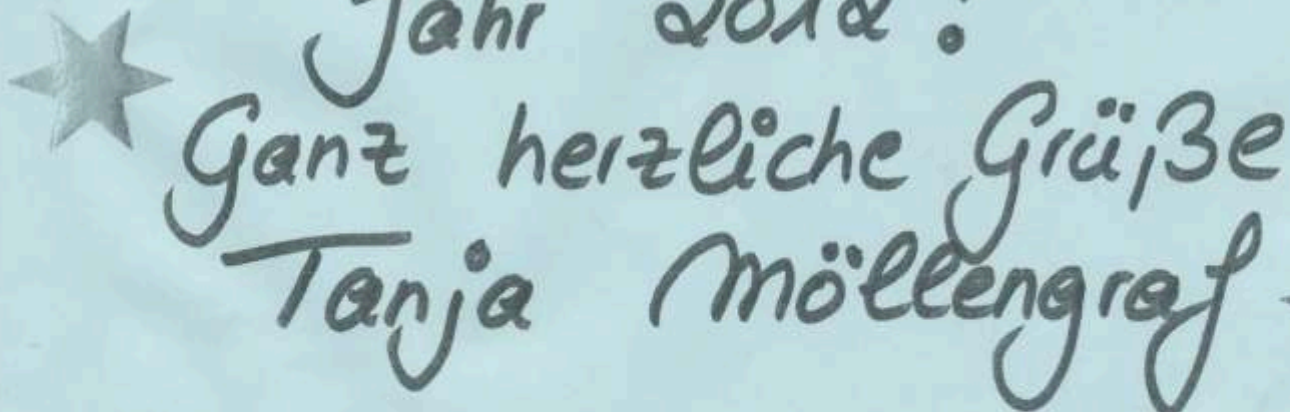 Jahr 2012!
Ganz herzliche Grüße
Tanja Möllengraf